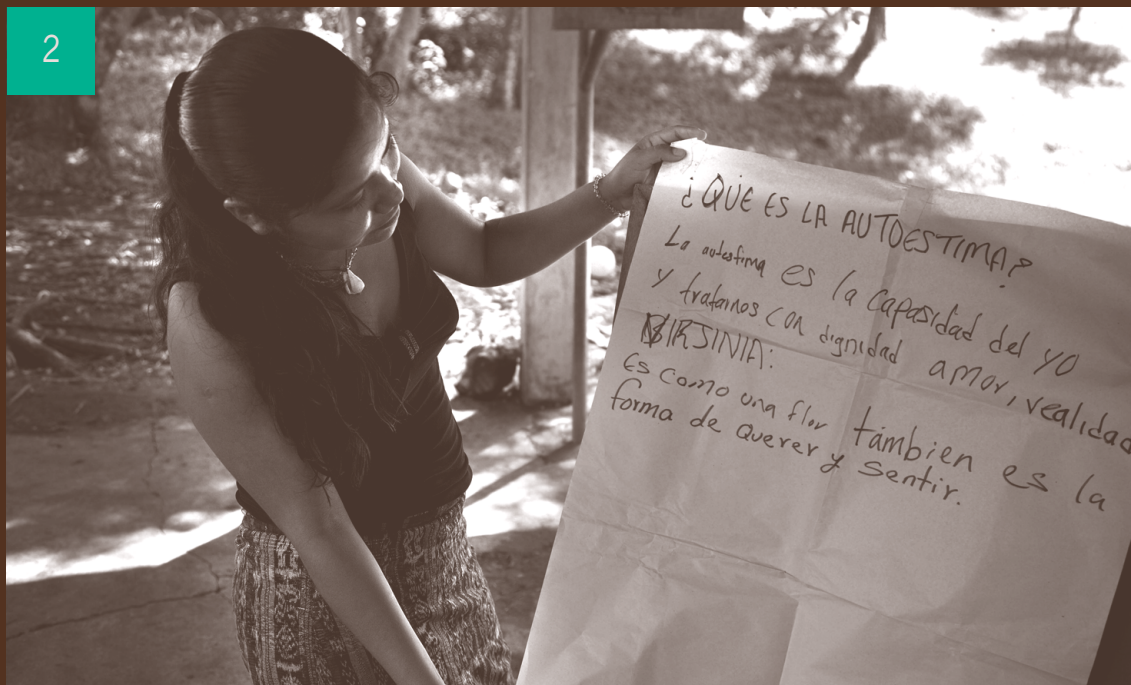 2
¿QUE ES LA AUTOESTIMA?
La autoestima es la capasidad del yo
y tratarnos con dignidad amor, realidad
VIRJINIA:
Es como una flor tambien es la
forma de querer y sentir.